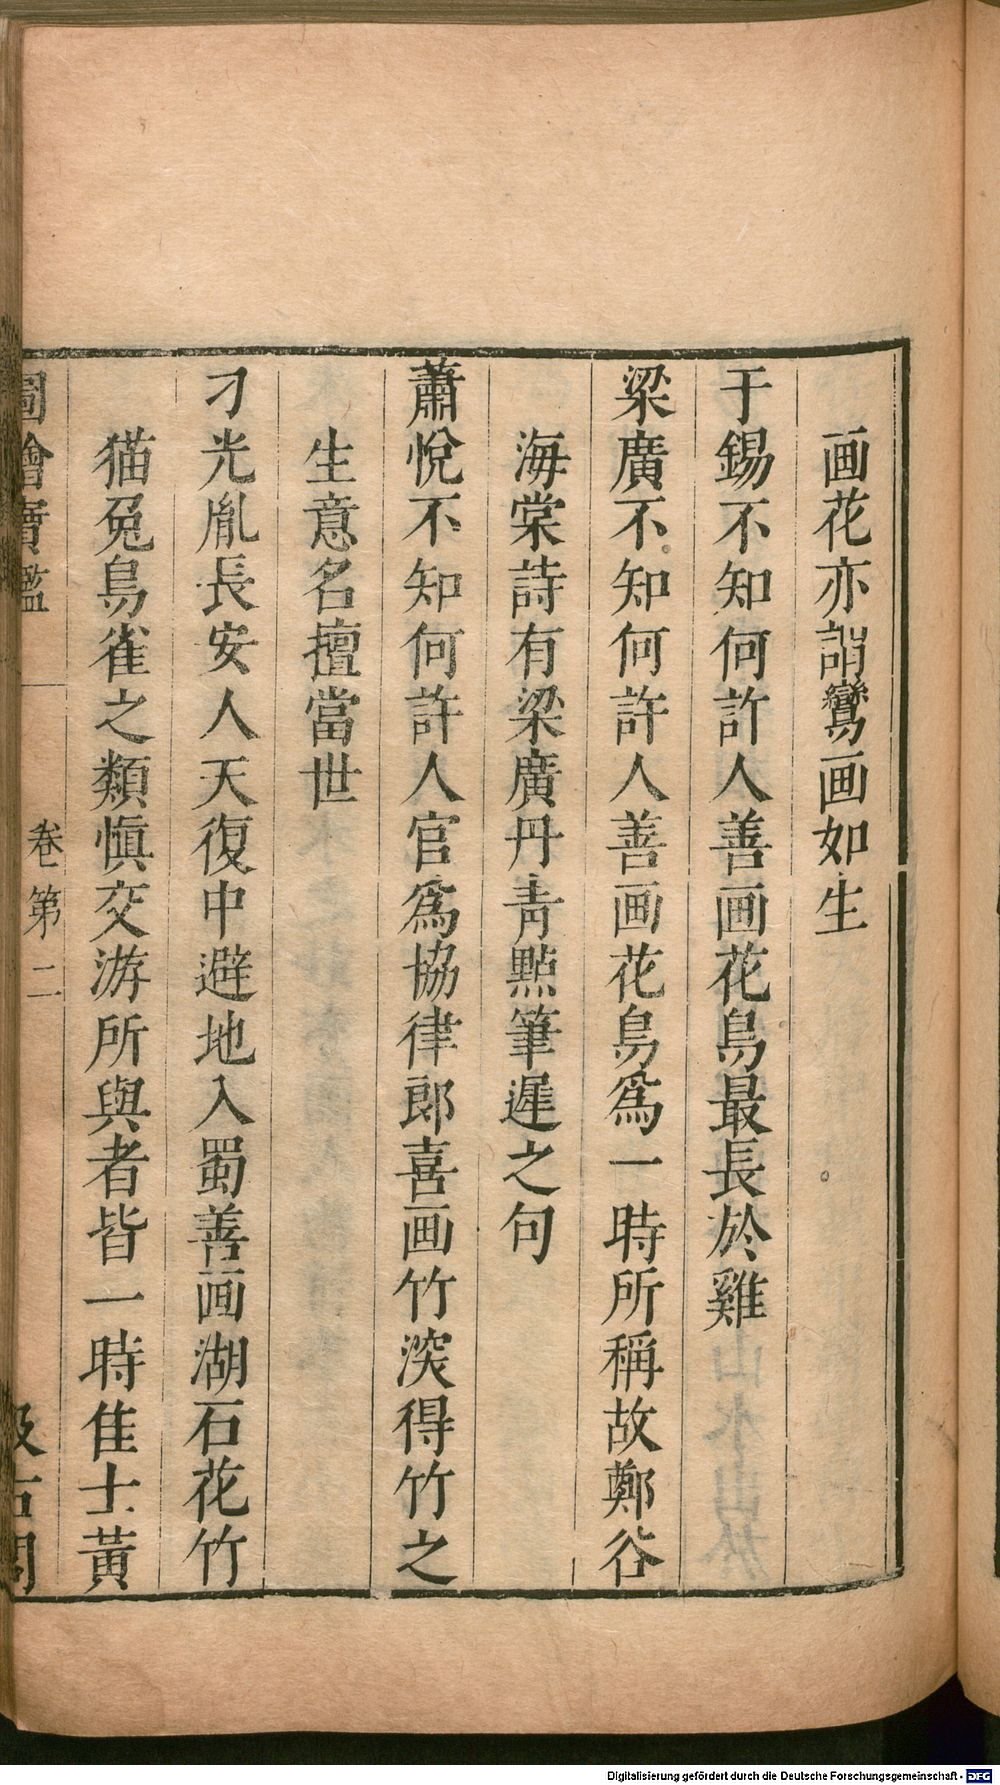 画花亦誚鸞画如生
于錫不知何許人善画花鳥最長於雞
梁廣不知何許人善画花鳥爲一時所稱故鄭谷
海棠詩有梁廣丹青點筆遲之句
蕭悅不知何許人官爲協律郎喜画竹深得竹之
生意名擅當世
刁光胤長安人天復中避地入蜀善画湖石花竹
猫兔鳥雀之類慎交游所與者皆一時佳士黃
圖繪寶鑑 卷第二 汲古閣
Digitalisierung gefördert durch die Deutsche Forschungsgemeinschaft - DFG